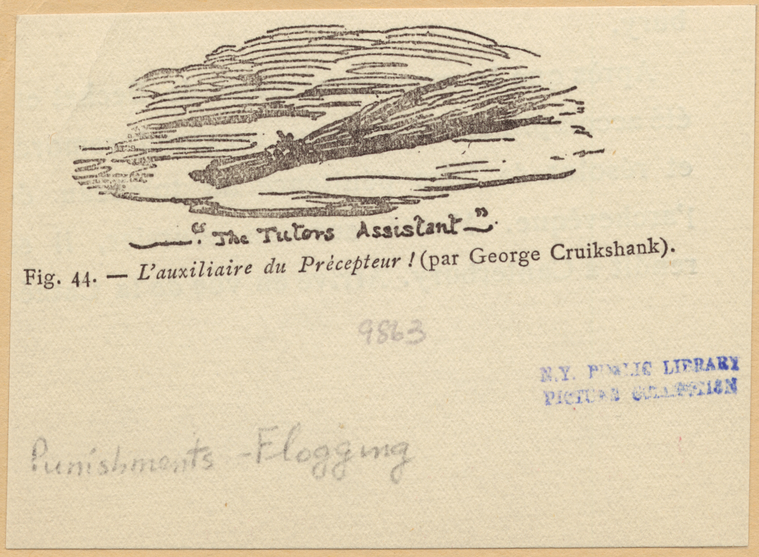 "The Tutors Assistant"
Fig. 44. — L'auxiliaire du Précepteur ! (par George Cruikshank).
9863
N.Y. PUBLIC LIBRARY
PICTURE COLLECTION
Punishments - Flogging